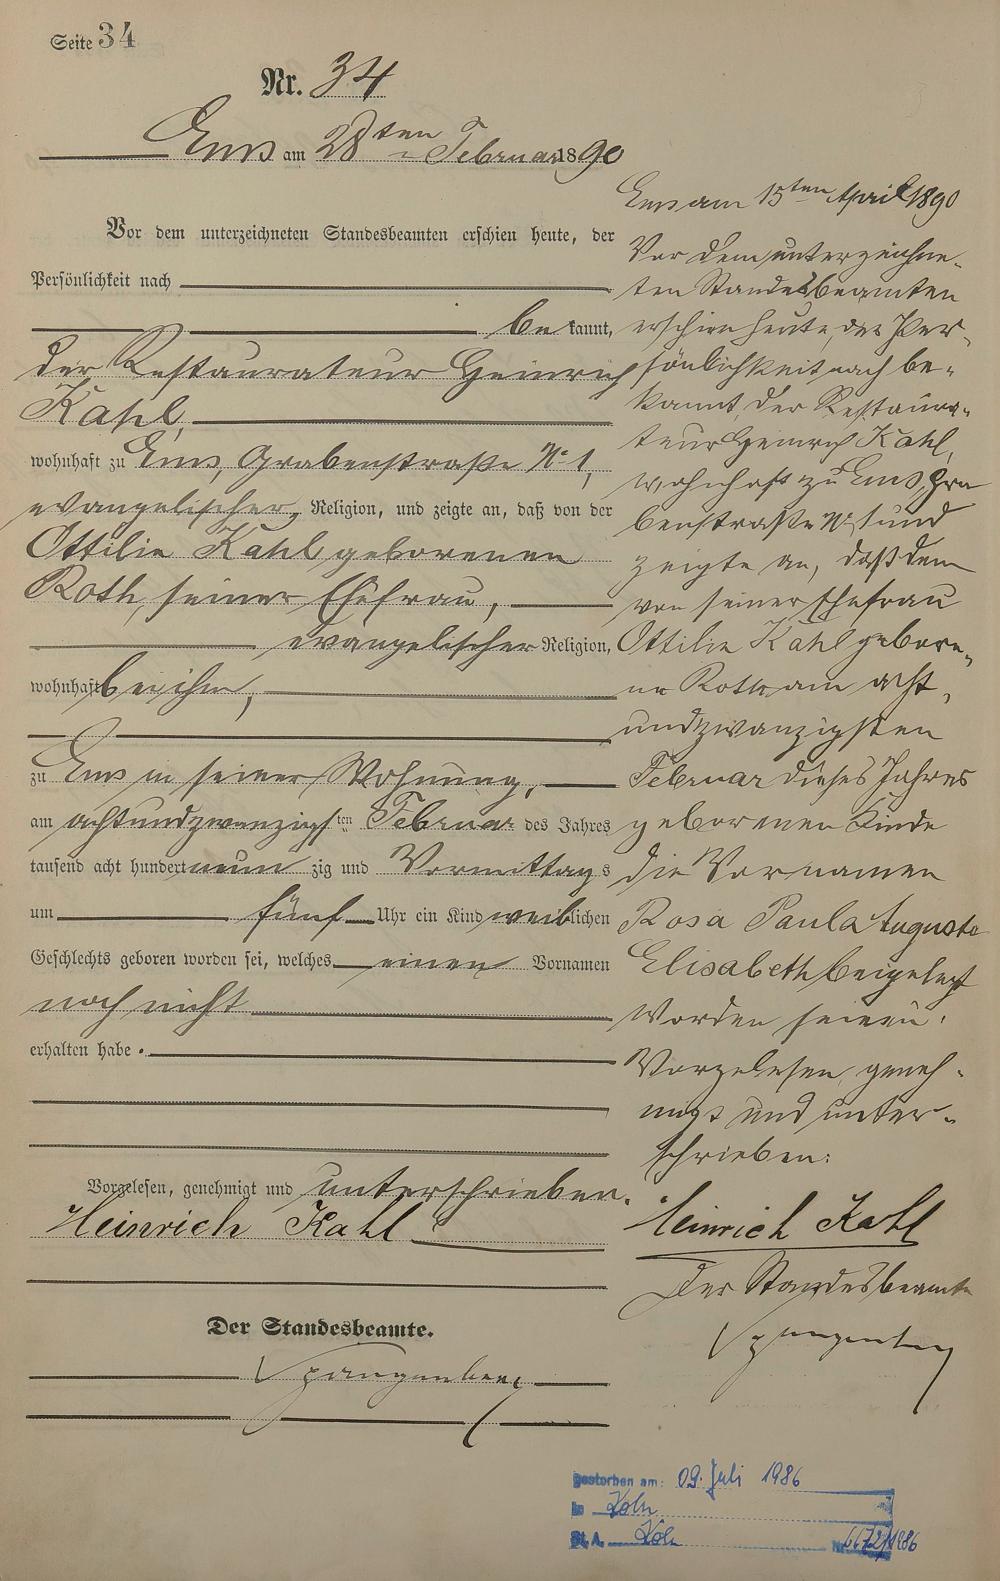 Seite 34
Nr. 34
Ems am 28ten Februar 1890
Vor dem unterzeichneten Standesbeamten erschien heute, der
Persönlichkeit nach
bekannt,
der Restaurateur Heinrich
Kahl,
wohnhaft zu Ems, Grabenstraße No 1,
evangelischer Religion, und zeigte an, daß von der
Ottilie Kahl geborenen
Roth, seiner Ehefrau,
evangelischer Religion,
wohnhaft bei ihm,
zu Ems in seiner Wohnung,
am achtundzwanzigsten Februar des Jahres
tausend acht hundert neunzig und Vormittags
um fünf Uhr ein Kind weiblichen
Geschlechts geboren worden sei, welches einen Vornamen
noch nicht
erhalten habe.
Vorgelesen, genehmigt und unterschrieben.
Heinrich Kahl
Der Standesbeamte.
Spangenberg
Ems am 15ten April 1890
Vor dem unterzeichne-
ten Standesbeamten
erschien heute, der Per-
sönlichkeit nach be-
kannt, der Restaura-
teur Heinrich Kahl,
wohnhaft zu Ems, Gra
benstraße No 1 und
zeigte an, daß dem
von seiner Ehefrau
Ottilie Kahl gebore-
ne Roth am acht-
undzwanzigsten
Februar dieses Jahres
geborenen Kinde
die Vornamen
Rosa Paula Auguste
Elisabeth beigelegt
worden seien.
Vorgelesen, geneh-
migt und unter-
schrieben:
Heinrich Kahl
Der Standesbeamte
Spangenberg
gestorben am: 09. Juli 1986
in Köln
St.A. Köln Nr. /1986